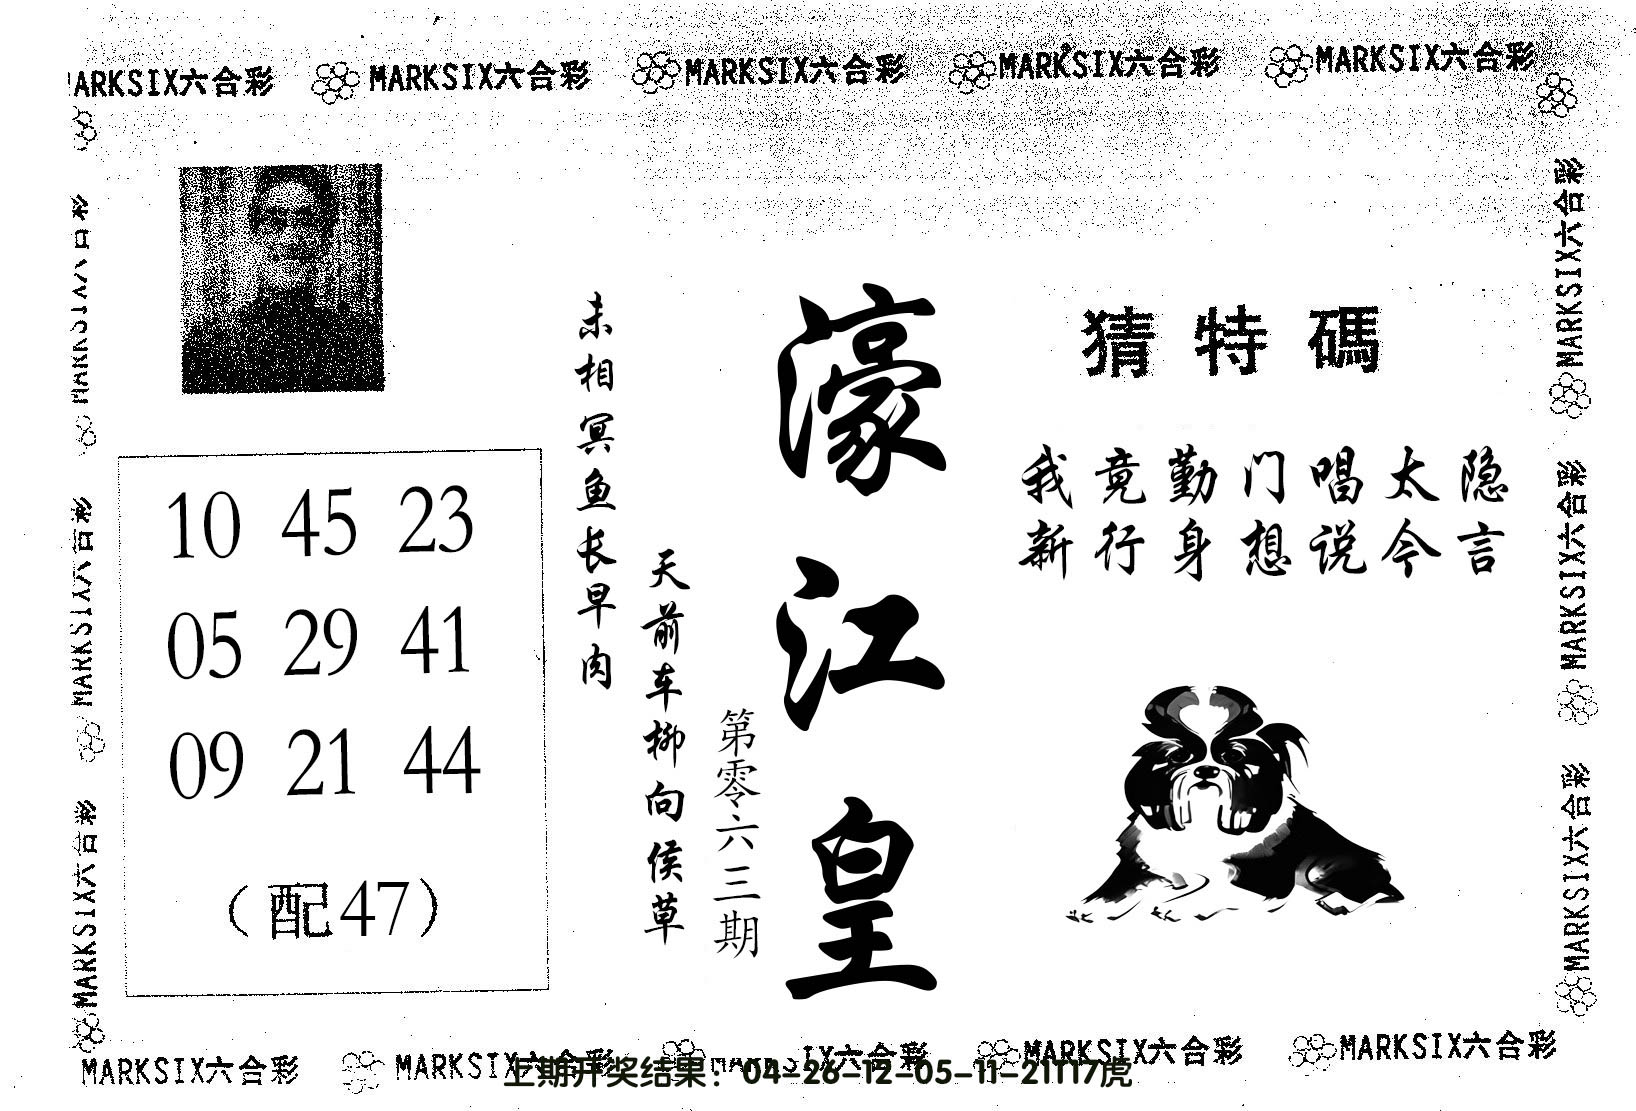 MARKSIX六合彩 MARKSIX六合彩 MARKSIX六合彩 MARKSIX六合彩 MARKSIX六合彩
MARKSIX六合彩
MARKSIX六合彩
MARKSIX六合彩
10 45 23
05 29 41
09 21 44
（配47）
未相冥鱼长早肉
天前车柳向侯草
第零六三期
濠江皇
猜特碼
我竟勤门唱太隐
新行身想说今言
MARKSIX六合彩
MARKSIX六合彩
MARKSIX六合彩
MARKSIX六合彩 MARKSIX六合彩 MARKSIX六合彩 MARKSIX六合彩 MARKSIX六合彩
上期开奖结果：04-26-12-05-11-21T17虎